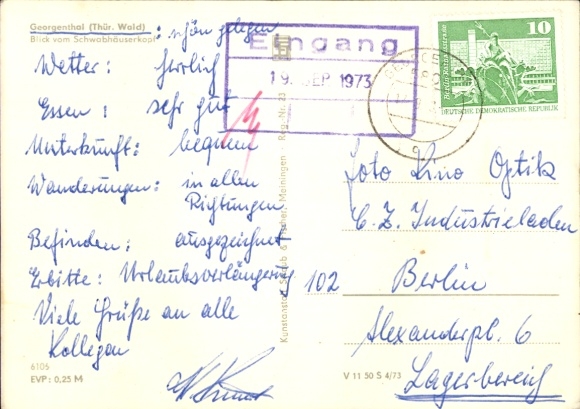 Georgenthal (Thür. Wald)
Blick vom Schwabhäuserkopf
: schön gelegen
Wetter: herrlich
Essen: sehr gut
Unterkunft: bequem
Wanderungen: in allen
Richtungen
Befinden: ausgezeichnet
Erbitte: Urlaubsverlängerung
Viele Grüße an alle
Kollegen
6105
EVP: 0,23 M
Eingang
19. SEP. 1973
Kunstanstalt Straub & Fischer, Meiningen Reg.-Nr. 23
10
Berlin
DEUTSCHE DEMOKRATISCHE REPUBLIK
Foto Kino Optik
C. Z. Industrieladen
102 Berlin
Alexanderpl. 6
Lagerbereich
V 11 50 S 4/73